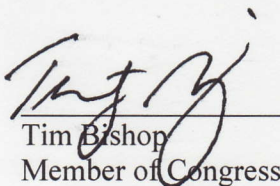 Tim Bishop
Member of Congress